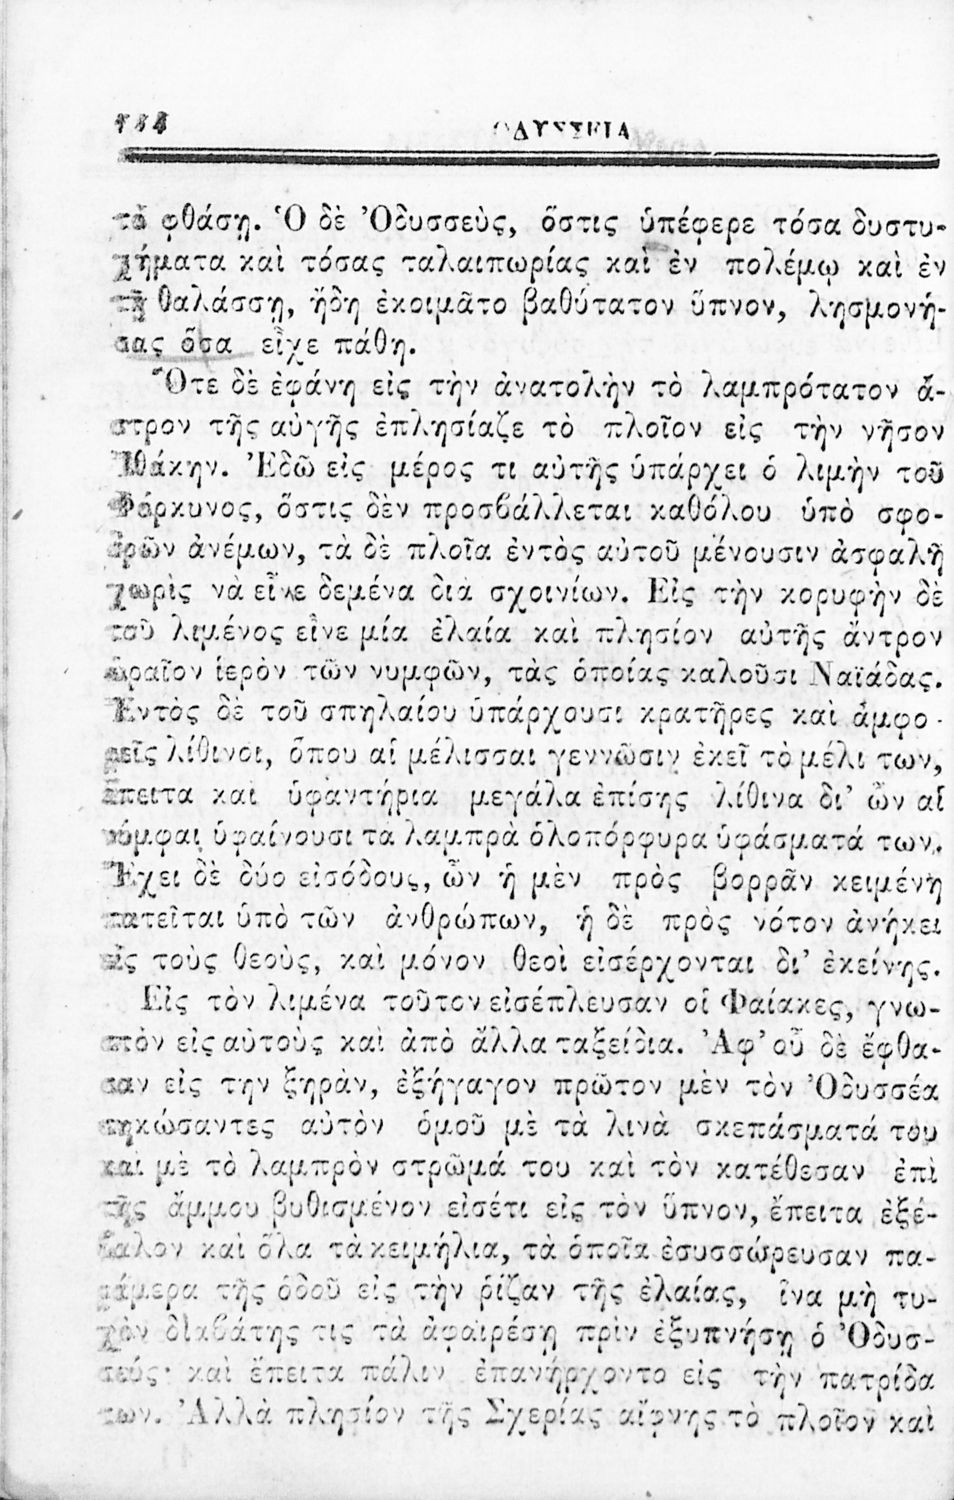 144 ΟΔΥΣΣΕΙΑ
τὸ φθάσῃ. Ὁ δὲ Ὀδυσσεὺς, ὅστις ὑπέφερε τόσα δυστυ-
χήματα καὶ τόσας ταλαιπωρίας καὶ ἐν πολέμῳ καὶ ἐν
τῇ θαλάσσῃ, ἤδη ἐκοιμᾶτο βαθύτατον ὕπνον, λησμονή-
σας ὅσα εἶχε πάθη.
Ὅτε δὲ ἐφάνη εἰς τὴν ἀνατολὴν τὸ λαμπρότατον ἄ-
στρον τῆς αὐγῆς ἐπλησίαζε τὸ πλοῖον εἰς τὴν νῆσον
Ἰθάκην. Ἐδῶ εἰς μέρος τι αὐτῆς ὑπάρχει ὁ λιμὴν τοῦ
Φόρκυνος, ὅστις δὲν προσβάλλεται καθόλου ὑπὸ σφο-
δρῶν ἀνέμων, τὰ δὲ πλοῖα ἐντὸς αὐτοῦ μένουσιν ἀσφαλῆ
χωρὶς νὰ εἶνε δεμένα διὰ σχοινίων. Εἰς τὴν κορυφὴν δὲ
τοῦ λιμένος εἶνε μία ἐλαία καὶ πλησίον αὐτῆς ἄντρον
ὡραῖον ἱερὸν τῶν νυμφῶν, τὰς ὁποίας καλοῦσι Ναϊάδας.
Ἐντὸς δὲ τοῦ σπηλαίου ὑπάρχουσι κρατῆρες καὶ ἀμφο-
ρεῖς λίθινοι, ὅπου αἱ μέλισσαι γεννῶσιν ἐκεῖ τὸ μέλι των,
ἔπειτα καὶ ὑφαντήρια μεγάλα ἐπίσης λίθινα δι’ ὧν αἱ
νύμφαι ὑφαίνουσι τὰ λαμπρὰ ὁλοπόρφυρα ὑφάσματά των.
Ἔχει δὲ δύο εἰσόδους, ὧν ἡ μὲν πρὸς βορρᾶν κειμένη
πατεῖται ὑπὸ τῶν ἀνθρώπων, ἡ δὲ πρὸς νότον ἀνήκει
εἰς τοὺς θεοὺς, καὶ μόνον θεοὶ εἰσέρχονται δι’ ἐκείνης.
Εἰς τὸν λιμένα τοῦτον εἰσέπλευσαν οἱ Φαίακες, γνω-
στὸν εἰς αὐτοὺς καὶ ἀπὸ ἄλλα ταξείδια. Ἀφ’ οὗ δὲ ἔφθα-
σαν εἰς την ξηρὰν, ἐξήγαγον πρῶτον μὲν τὸν Ὀδυσσέα
σηκώσαντες αὐτὸν ὁμοῦ μὲ τὰ λινὰ σκεπάσματά του
καὶ μὲ τὸ λαμπρὸν στρῶμά του καὶ τὸν κατέθεσαν ἐπὶ
τῆς ἄμμου βυθισμένον εἰσέτι εἰς τὸν ὕπνον, ἔπειτα ἐξέ-
βαλον καὶ ὅλα τὰ κειμήλια, τὰ ὁποῖα ἐσυσσώρευσαν πα-
ράμερα τῆς ὁδοῦ εἰς τὴν ῥίζαν τῆς ἐλαίας, ἵνα μὴ τυ-
χὸν διαβάτης τις τὰ ἀφαιρέσῃ πρὶν ἐξυπνήσῃ ὁ Ὀδυσ-
σεύς· καὶ ἔπειτα πάλιν ἐπανήρχοντο εἰς τὴν πατρίδα
των. Ἀλλὰ πλησίον τῆς Σχερίας αἴφνης τὸ πλοῖον καὶ